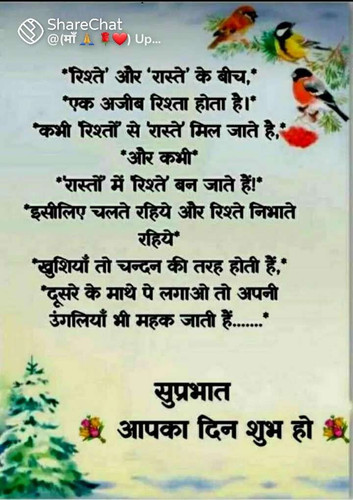 ShareChat
@(माँ 🙏🌹❤️) Up...
*'रिश्ते' और 'रास्ते' के बीच,*
*एक अजीब रिश्ता होता है।*
*कभी 'रिश्तों' से 'रास्ते' मिल जाते है,*
*और कभी*
*'रास्तों' में 'रिश्ते' बन जाते हैं!*
*इसीलिए चलते रहिये और रिश्ते निभाते
रहिये*
*खुशियाँ तो चन्दन की तरह होती हैं,*
*दूसरे के माथे पे लगाओ तो अपनी
उंगलियाँ भी महक जाती हैं.......*
सुप्रभात
💐 आपका दिन शुभ हो 💐